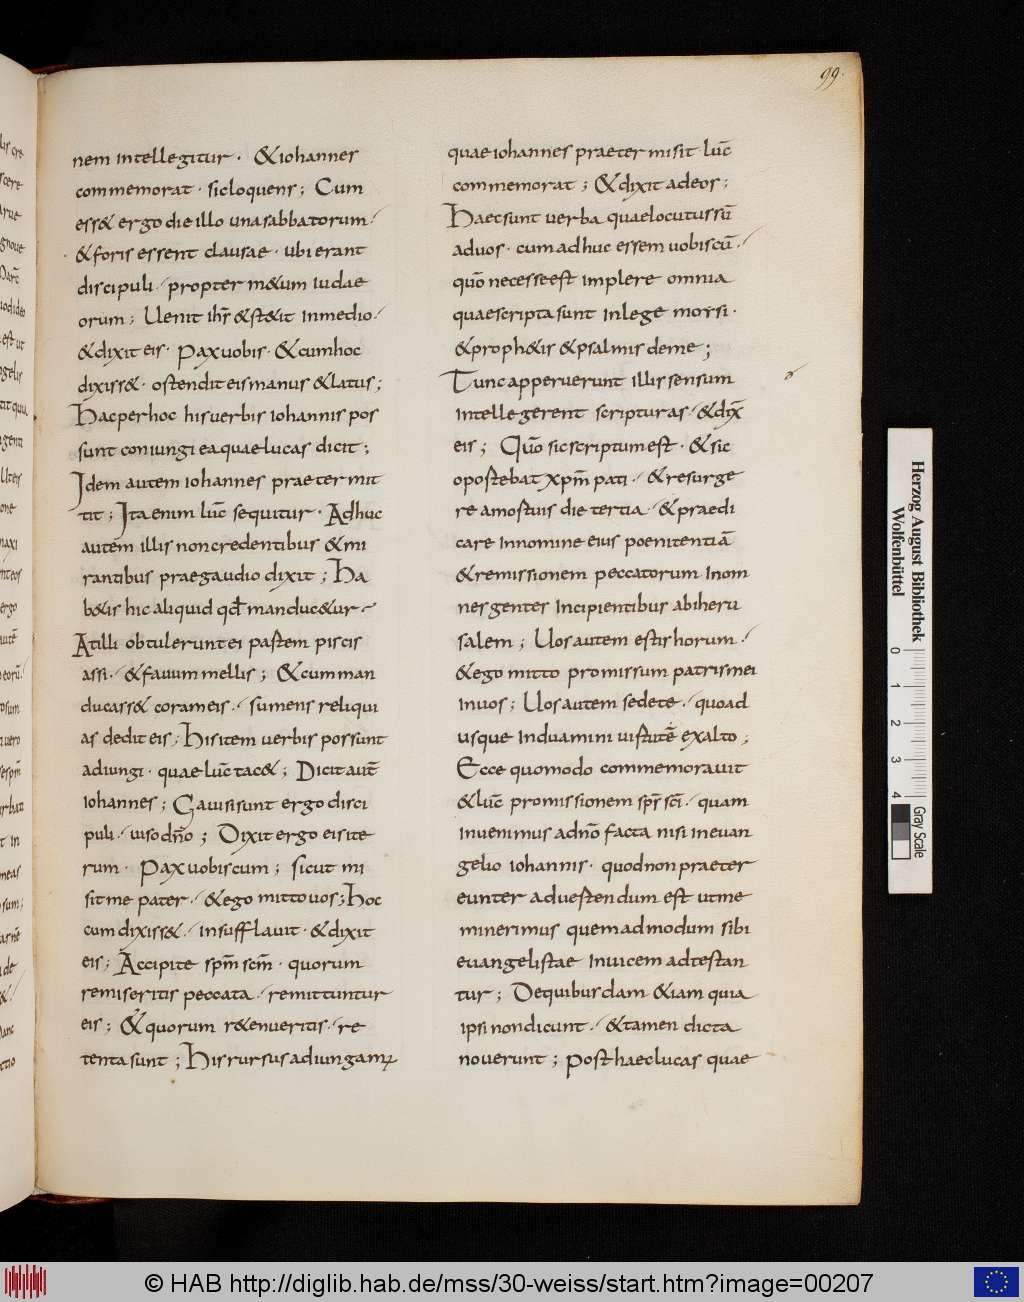 99.
nem intellegitur · & iohannes
commemorat · sic loquens ; Cum
ess& ergo die illo una sabbatorum ·/
& foris essent clausae · ubi erant
discipuli ·/ propter m&um iudae
orum ; Uenit ihs̄ & st&it in medio ·/
& dixit eis · Pax uobis · & cum hoc
dixiss& · ostendit eis manus & latus ;
Hac per hoc his uerbis iohannis pos
sunt coniungi ea quae lucas dicit ;
Idem autem iohannes praetermit
tit ; Ita enim luc̄ sequitur · Adhuc
autem illis non credentibus & mi
rantibus prae gaudio dixit ; Ha
b&is hic aliquid qđ manduc&ur ·/
At illi obtulerunt ei partem piscis
assi ·/ & fauum mellis ; & cum man
ducass& coram eis ·/ sumens reliqui
as dedit eis ; His item uerbis possunt
adiungi · quae luc̄ tac& ; Dicit aut̄
iohannes ; Gauisi sunt ergo disci
puli ·/ uiso dn̄o ; Dixit ergo eis ite
rum · Pax uobiscum ; sicut mi
sit me pater ·/ & ego mitto uos ; Hoc
cum dixiss& ·/ insufflauit · & dixit
eis ; Accipite spm̄ scm̄ · quorum
remiseritis peccata ·/ remittuntur
eis ; & quorum r&enueritis ·/ re
tenta sunt ; His rursus adiungamꝰ
quae iohannes praetermisit luc̄
commemorat ; & dixit ad eos ;
Haec sunt uerba quae locutus sū
ad uos · cum adhuc essem uobiscū ·/
quō necesse est implere omnia
quae scripta sunt in lege moysi ·
& proph&is & psalmis de me ;
Tunc apperuerunt illis sensum
intellegerent scripturas ·/ & dix̄
eis ; Quō sic scriptum est · & sic
oportebat xpm̄ pati ·/ & resurge
re a mortuis die tertia ·/ & praedi
care in nomine eius poenitentiā
& remissionem peccatorum in om
nes gentes incipientibus ab iheru
salem ; Uos autem estis horum ·/
& ego mitto promissum patris mei
in uos ; Uos autem sedete ·/ quoad
usque induamini uirtutē ex alto ;
Ecce quomodo commemorauit
& luc̄ promissionem spr̄ sc̄i ·/ quam
inuenimus a dn̄o facta nisi in euan
gelio iohannis · quod non praeter
eunter aduertendum est ut me
minerimus quemadmodum sibi
euangelistae inuicem adtestan
tur ; De quibusdam &iam quia
ipsi non dicunt ·/ & tamen dicta
nouerunt ; post haec lucas quae
Herzog August Bibliothek
Wolfenbüttel
0 1 2 3 4
Gray Scale
© HAB http://diglib.hab.de/mss/30-weiss/start.htm?image=00207